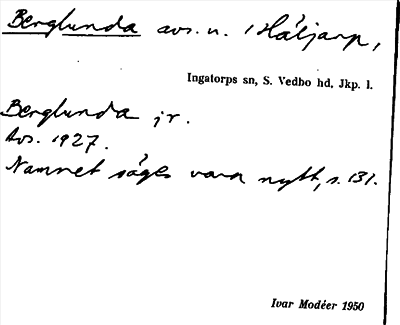 Berglunda avs. u. Håljarp,
Ingatorps sn, S. Vedbo hd, Jkp. l.
Berglunda jr.
Avs. 1927.
Namnet säges vara nytt, s. 131.
Ivar Modéer 1950